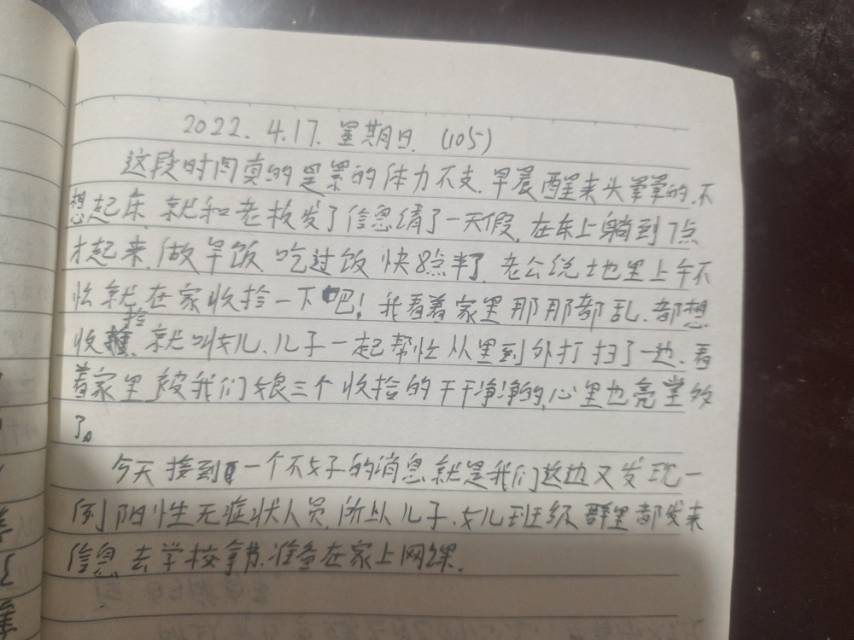 2022. 4.17. 星期日. (105)
这段时间真的是累的体力不支.早晨醒来头晕晕的.不
想起床.就和老板发了信息请了一天假.在床上躺到7点
才起来.做早饭 吃过饭 快8点半了.老公说地里上午不
忙就在家收拾一下吧!我看着家里那那都乱.都想
收拾.就叫女儿、儿子一起帮忙从里到外打扫了一边.看
着家里被我们娘三个收拾的干干净净的,心里也亮堂多
了。
今天接到一个不好的消息就是我们这边又发现一
例阳性无症状人员.所以儿子.女儿班级群里都发来
信息 去学校拿书.准备在家上网课.